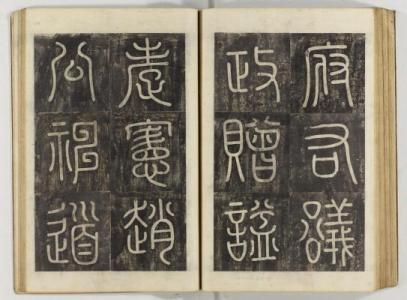 府右議
政贈諡
孝憲趙
公神道